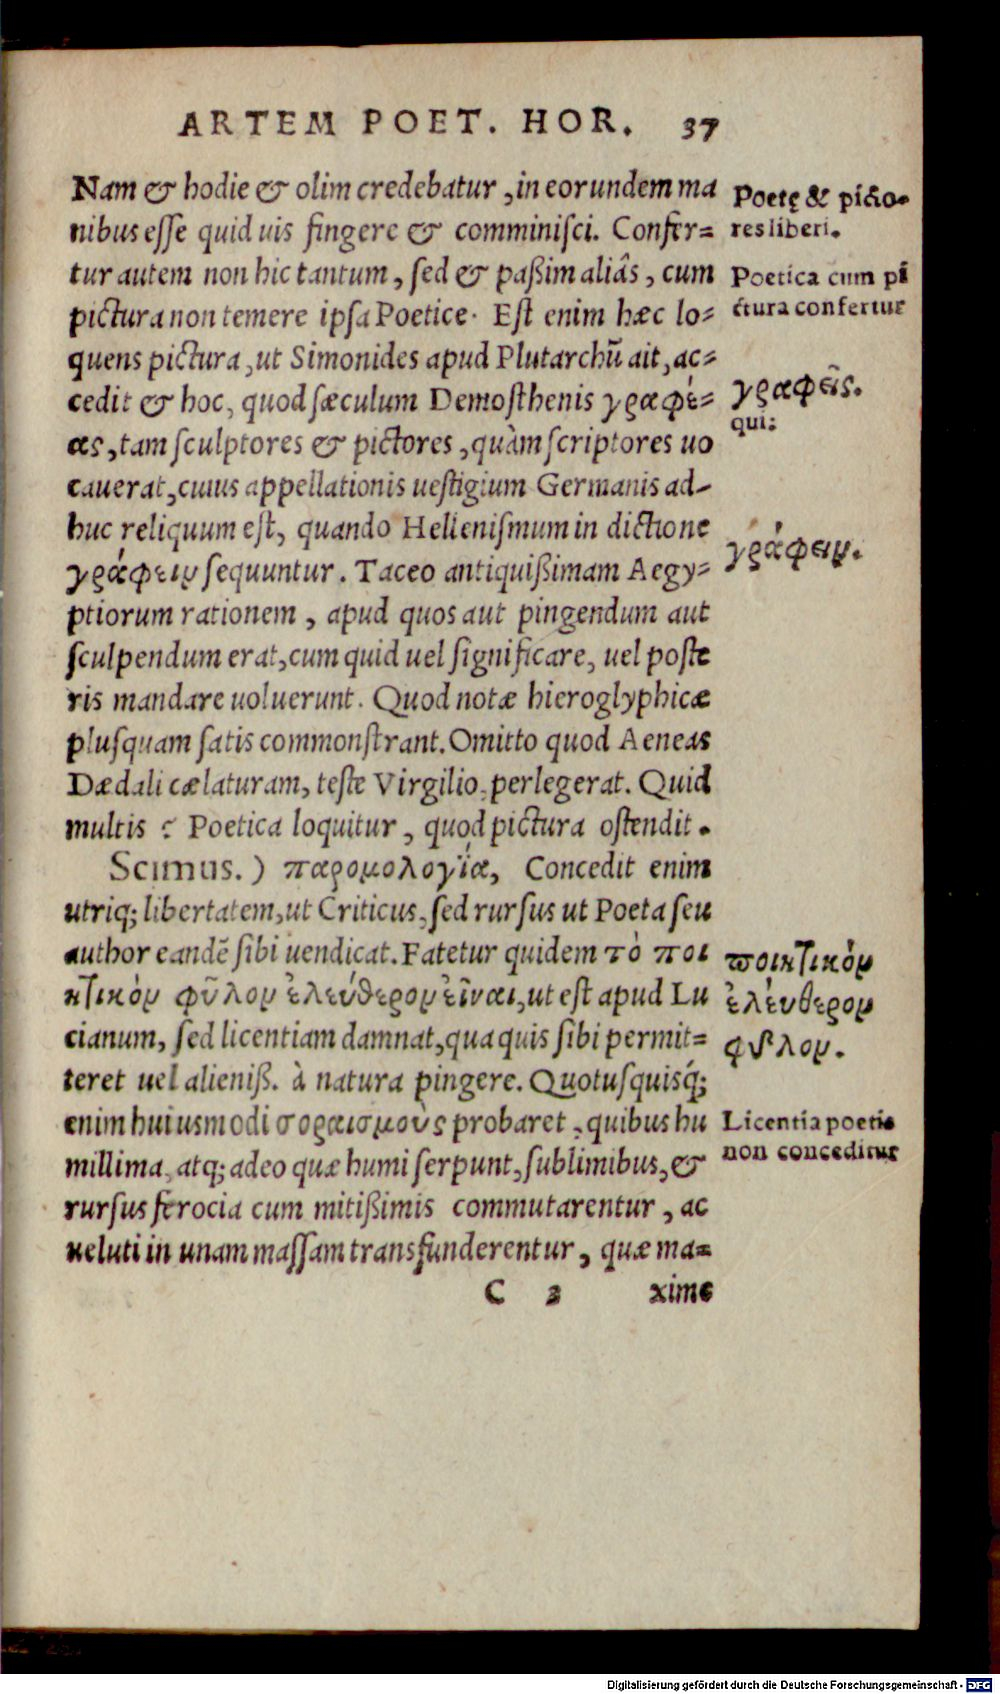 ARTEM POET. HOR. 37
Nam & hodie & olim credebatur, in eorundem ma
nibus esse quid uis fingere & comminisci. Confer=
tur autem non hic tantum, sed & paßim aliâs, cum
pictura non temere ipsa Poetice. Est enim hæc lo=
quens pictura, ut Simonides apud Plutarchū ait, ac=
cedit & hoc, quod sæculum Demosthenis γραφέ=
ας, tam sculptores & pictores, quàm scriptores uo
cauerat, cuius appellationis uestigium Germanis ad-
huc reliquum est, quando Hellenismum in dictione
γράφειν sequuntur. Taceo antiquißimam Aegy=
ptiorum rationem, apud quos aut pingendum aut
sculpendum erat, cum quid uel significare, uel poste
ris mandare uoluerunt. Quod notæ hieroglyphicæ
plusquam satis commonstrant. Omitto quod Aeneas
Dædali cælaturam, teste Virgilio, perlegerat. Quid
multis ? Poetica loquitur, quod pictura ostendit.
Scimus.) παρομολογία, Concedit enim
utriq; libertatem, ut Criticus, sed rursus ut Poeta seu
author eandē sibi uendicat. Fatetur quidem τὸ ποι
ητικὸν φῦλον ἐλεύθερον εἶναι, ut est apud Lu
cianum, sed licentiam damnat, qua quis sibi permit=
teret uel alieniß. à natura pingere. Quotusquisq́;
enim huiusmodi σοραισμοὺς probaret, quibus hu
millima, atq; adeo quæ humi serpunt, sublimibus, &
rursus ferocia cum mitißimis commutarentur, ac
ueluti in unam massam transfunderentur, quæ ma=
C 3 xime
Poetę & picto-
res liberi.
Poetica cum pi
ctura confertur
γραφεῖς.
qui;
γράφειν.
ποιητικὸν
ἐλεύθερον
φῦλον.
Licentia poetis
non conceditur
Digitalisierung gefördert durch die Deutsche Forschungsgemeinschaft - DFG